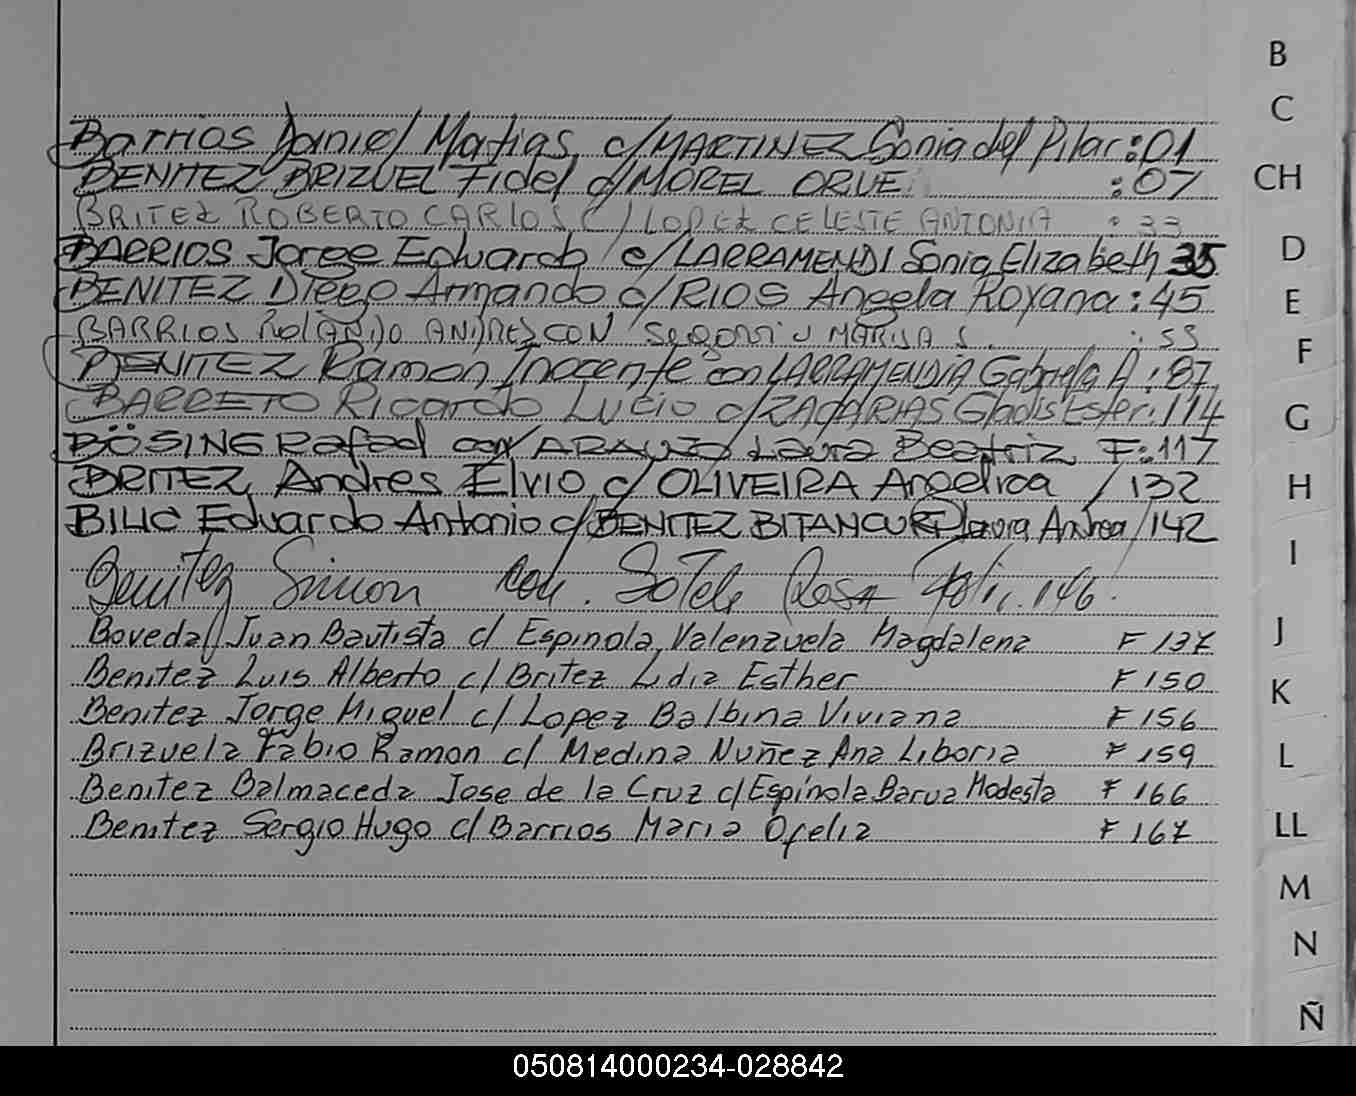 Barrios Daniel Matias c/MARTINEZ Sonia del Pilar:01
BENITEZ BRIZUEL Fidel c/MOREL ORUE :07
BRITEZ ROBERTO CARLOS C/ LOPEZ CELESTE ANTONIA : 33
BARRIOS Jorge Eduardo c/LARRAMENDI Sonia Elizabeth 35
BENITEZ Diego Armando c/RIOS Angela Roxana:45
BARRIOS ROLANDO ANDRES CON Segovia MARISA S. :55
BENITEZ Ramon Inocente con LARRAMENDIA Gabriela A:87
BARRETO Ricardo Lucio c/ZACARIAS Gladis Ester:114
BÖSING Rafael con ARAUZO Laura Beatriz F:117
BRITEZ Andres Elvio c/ OLIVEIRA Angelica / 132
BILIC Eduardo Antonio c/BENITEZ BITANCURT Laura Andrea/142
Benitez Simon con. Sotelo Rosa Folio. 146.
Boveda Juan Bautista c/ Espinola Valenzuela Magdalena F 137
Benitez Luis Alberto c/ Britez Lidia Esther F 150
Benitez Jorge Miguel c/ Lopez Balbina Viviana F 156
Brizuela Fabio Ramon c/ Medina Nuñez Ana Liboria F 159
Benitez Balmaceda Jose de la Cruz c/ Espínola Barua Modesta F 166
Benitez Sergio Hugo c/ Barrios Maria Ofelia F 167
B
C
CH
D
E
F
G
H
I
J
K
L
LL
M
N
Ñ
050814000234-028842